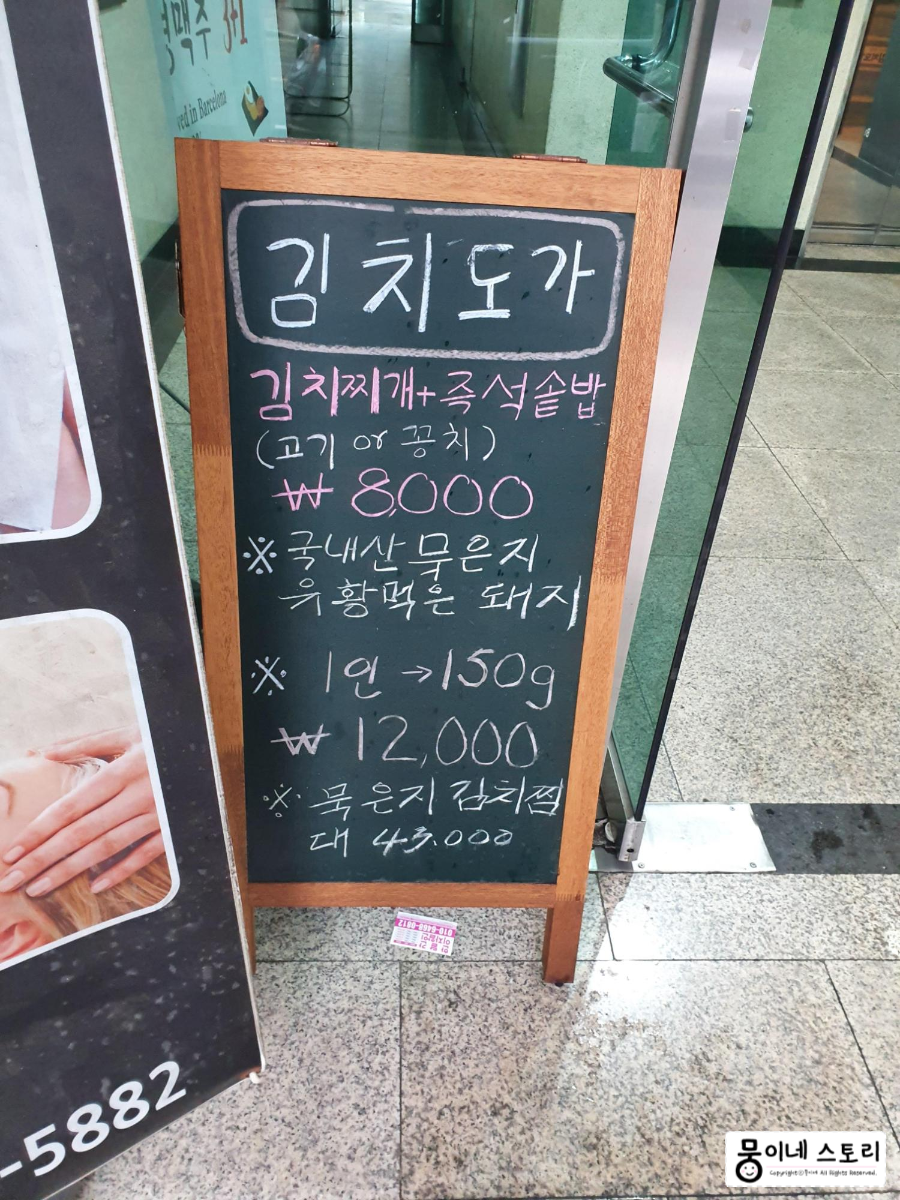 맥주
ved in Barcelona
김치도가
김치찌개+즉석솥밥
(고기 or 꽁치)
₩ 8,000
※국내산 묵은지
유황먹은 돼지
※ 1인 →150g
₩ 12,000
※ 묵은지 김치찜
대 43.000
-5882
뭉이네 스토리
Copyrightⓒ뭉이네 All Rights Reserved.